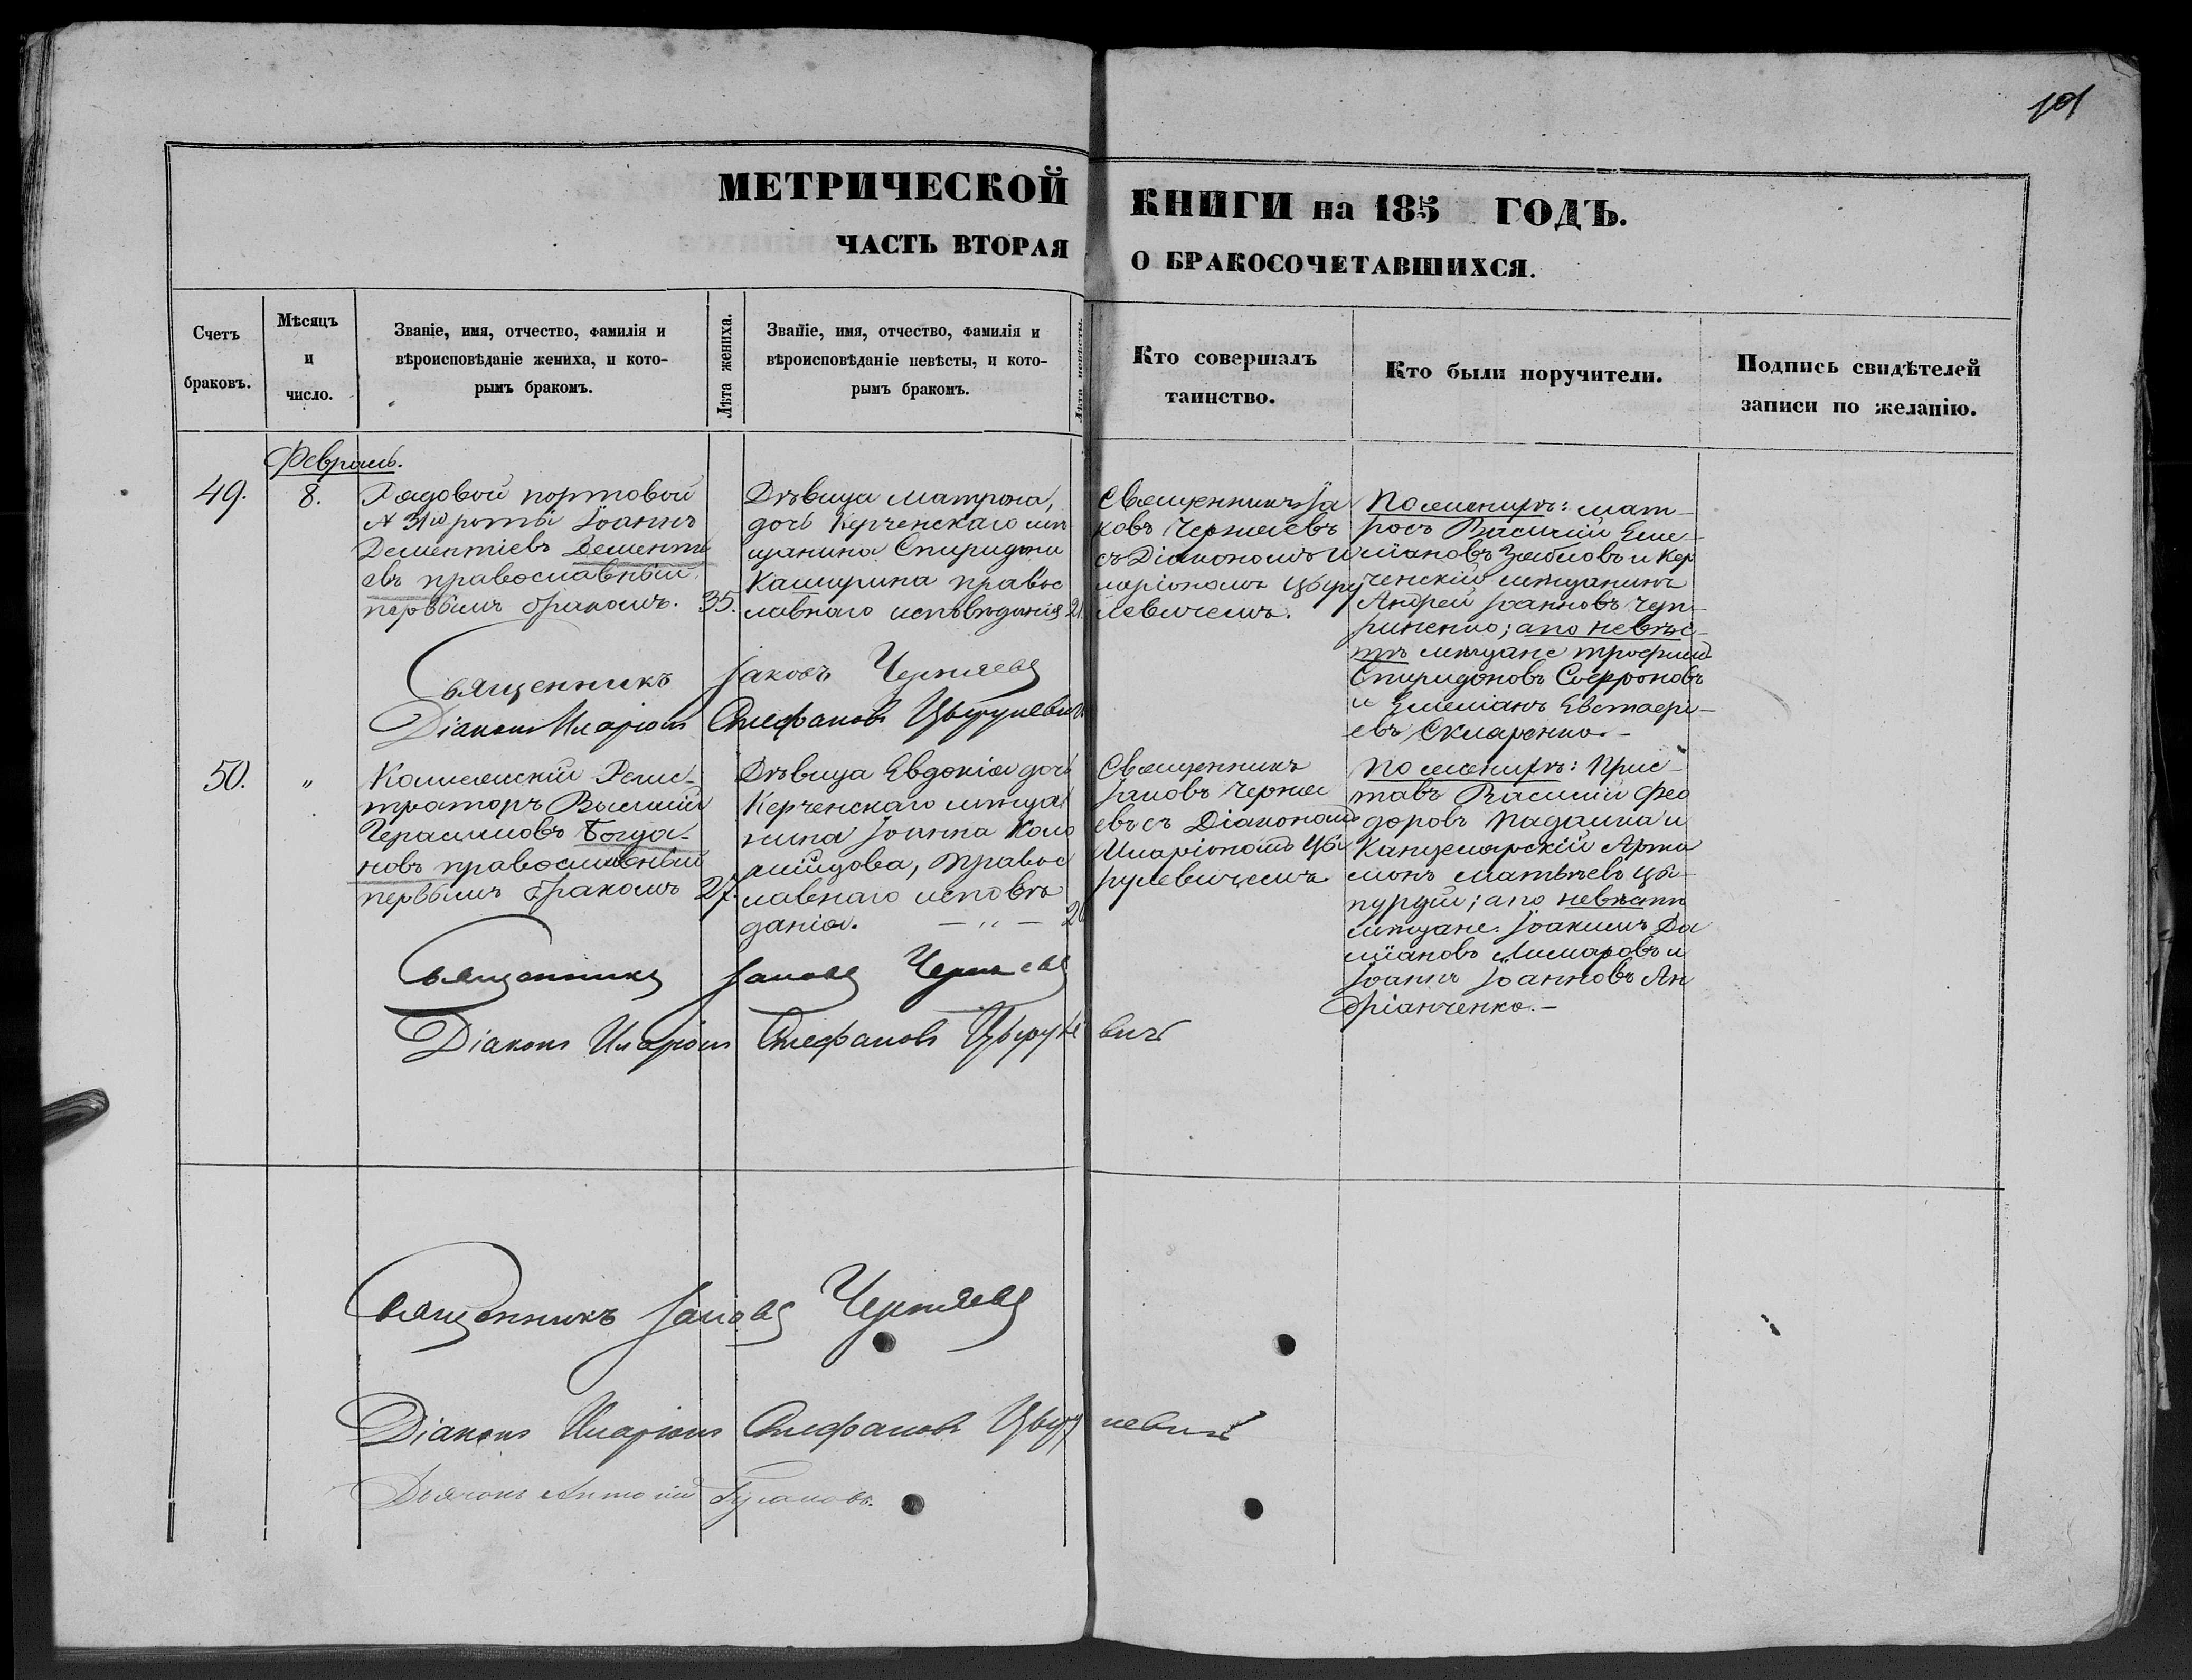 101
МЕТРИЧЕСКОЙ КНИГИ на 185 ГОДЪ.
ЧАСТЬ ВТОРАЯ О БРАКОСОЧЕТАВШИХСЯ.
Счетъ
браковъ.
Мѣсяцъ
и
число.
Званіе, имя, отчество, фамилія и
вѣроисповѣданіе жениха, и кото-
рымъ бракомъ.
Лѣта жениха.
Званіе, имя, отчество, фамилія и
вѣроисповѣданіе невѣсты, и кото-
рымъ бракомъ.
Лѣта невѣсты.
Кто совершалъ
таинство.
Кто были поручители.
Подпись свидѣтелей
записи по желанію.
Февраль.
49.
8.
Рядовой портовой
роты Іоаннъ
Дементіевъ Дементі
евъ православный
первымъ бракомъ.
35.
Дѣвица Матрона,
дочь Керченскаго мѣ
щанина Спиридона
Кашурина правос
лавнаго исповѣданія
21
Священникъ Іа
ковъ Черняевъ
съ Діакономъ И
ларіономъ Цыру
левичемъ.
По женихѣ: мат-
росъ Василій Еме-
ліановъ Зяблов и Кер
ченскій мѣщанинъ
Андрей Іоанновъ Чуп-
риненко; а по невѣс-
тѣ мѣщане Трофимъ
Спиридоновъ Софроновъ
и Емеліанъ Евстафі-
евъ Скляренко.-
Священникъ Іаковъ Черняевъ
Діаконъ Иларіонъ Стефановъ Цырулевичъ
50.
"
Коллежскій Регис-
траторъ Василій
Герасимовъ Богда-
новъ православный
первымъ бракомъ
27.
Дѣвица Евдокія дочь
Керченскаго мѣща
нина Іоанна Коло
правос
лавнаго исповѣ
данія. - " -
20
Священникъ
Іаковъ Черня
евъ съ Діакономъ
Иларіономъ Цы
рулевичемъ
По женихѣ: Прис-
тавъ Василій Фео
доровъ Падалка и
Канцелярскій Арте
монъ Матвѣевъ Цы-
а по невѣстѣ
мѣщане: Іоакимъ Да
міановъ и
Іоаннъ Іоанновъ Ан
дріанченко.-
Священникъ Іаковъ Черняевъ
Діаконъ Иларіонъ Стефановъ Цырулевичъ
Священникъ Іаковъ Черняевъ
Діаконъ Иларіонъ Стефановъ Цырулевичъ
Дьячокъ Антоній